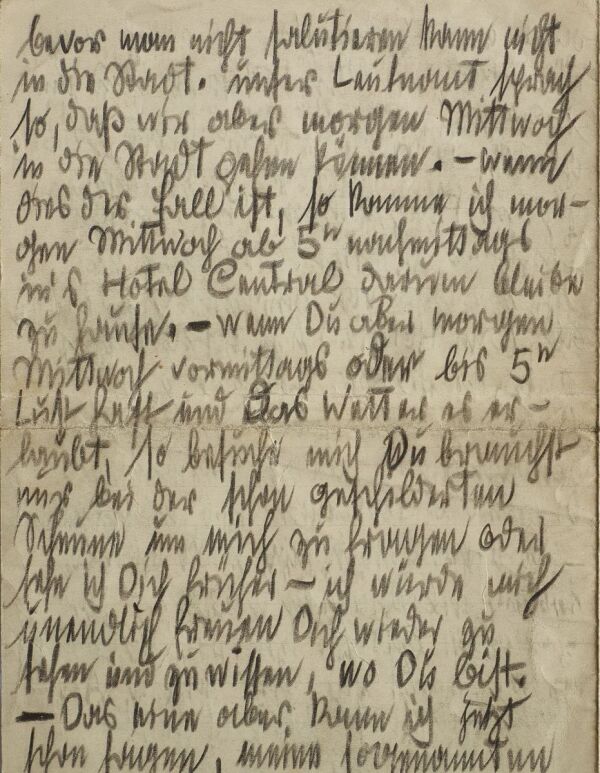 bevor man nicht salutieren kann nicht
in die Stadt. Unser Leutnant sprach
so, daß wir aber morgen Mittwoch
in die Stadt gehen können. – Wenn
dies der Fall ist, so komme ich mor-
gen Mittwoch ab 5ʰ nachmittags
in's Hotel Central darum bleibe
zu Hause. – Wenn Du aber morgen
Mittwoch vormittags oder bis 5ʰ
Lust hast und das Wetter es er-
laubt, so besuche mich Du brauchst
nur bei der schon geschilderten
Scheune um mich zu fragen oder
sehe ich Dich früher – ich würde mich
unendlich freuen Dich wieder zu
sehen und zu wissen, wo Du bist.
– Das eine aber kann ich jetzt
schon sagen, meine sogenannten